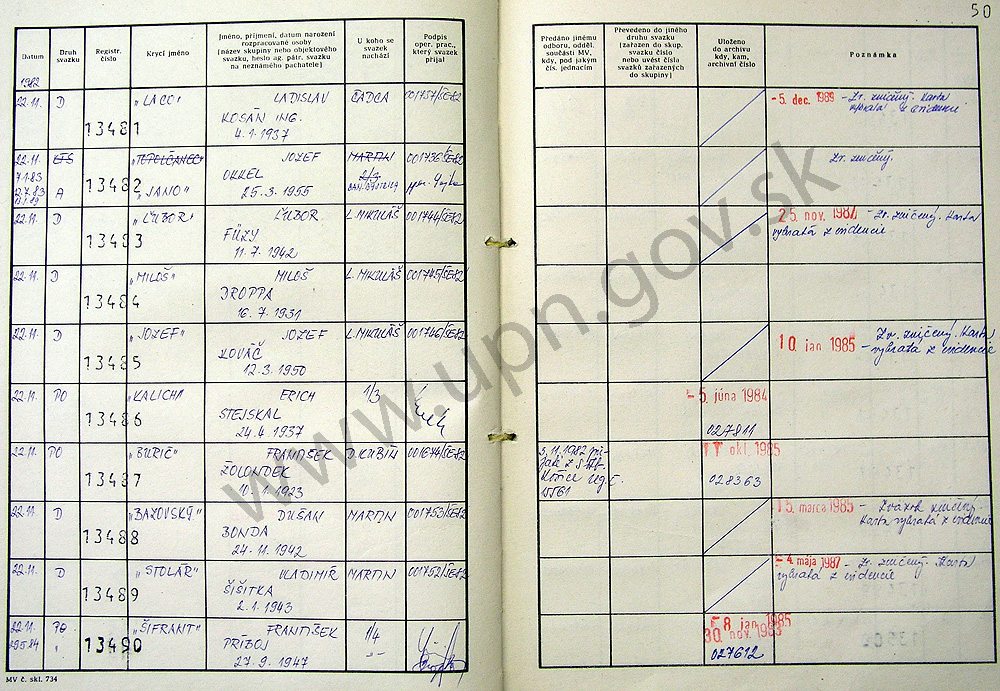 50
Datum
Druh svazku
Registr. číslo
Krycí jméno
Jméno, příjmení, datum narození
rozpracované osoby
(název skupiny nebo objektového
svazku, heslo ag. pátr. svazku
na neznámého pachatele)
U koho se
svazek
nachází
Podpis
oper. prac.,
který svazek
přijal
Předáno jinému
odboru, odděl.
součásti MV,
kdy, pod jakým
čís. jednacím
Převedeno do jiného
druhu svazku
(zařazen do skup.
svazku číslo
nebo uvést čísla
svazků zařazených
do skupiny)
Uloženo
do archivu
kdy, kam,
archivní číslo
Poznámka
1982
22.11. D 13481 "LACO" LADISLAV ČADCA 001737/ŠE-82
KOSÁN ING.
4.1.1937
- 5. dec. 1989 - Zv. zničený. Karta
vybratá z evidencie
22.11. "TOPOLČANEC" JOZEF MARTIN 001736/ŠE-82
7.1.83 13482 OKKEL
A "JANO" 25.3.1955
Zv. zničený.
22.11. D 13483 "ĽUBOR" ĽUBOR L. MIKULÁŠ 001744/ŠE-82
FÜZY
11.7.1942
25. nov. 1987 - Zv. zničený. Karta
vybratá z evidencie
22.11. D 13484 "MILOŠ" MILOŠ L. MIKULÁŠ 001745/ŠE-82
DROPPA
16.7.1931
22.11. D 13485 "JOZEF" JOZEF L. MIKULÁŠ 001746/ŠE-82
KOVÁČ
12.3.1950
10. jan. 1985 Zv. zničený. Karta
- vybratá z evidencie
22.11. PO 13486 "KALICH" ERICH 1/3
STEJSKAL
24.4.1937
- 5. júna 1984
027811
22.11. PO 13487 "BURIČ" FRANTIŠEK D. KUBÍN 001674/ŠE-82
ŽOLONDEK
10.1.1923
3.11.1982 pri-
jaté z
Košice reg. č.
15561
11 okt. 1985
028363
22.11. D 13488 "BAZOVSKÝ" DUŠAN MARTIN 001753/ŠE-82
BONDA
24.11.1942
15. marca 1985 - Zväzok zničený.
Karta vybratá z evidencie
22.11. D 13489 "STOLÁR" VLADIMÍR MARTIN 001752/ŠE-82
ŠIŠITKA
2.1.1943
- 4. mája 1987 - Zv. zničený. Karta
vybratá z evidencie
22.11. PO 13490 "ŠIFRANT" FRANTIŠEK 1/4
PRÍBOJ
27.9.1947
8. jan. 1985
30. nov. 1983
027612
MV č. skl. 734
www.upn.gov.sk